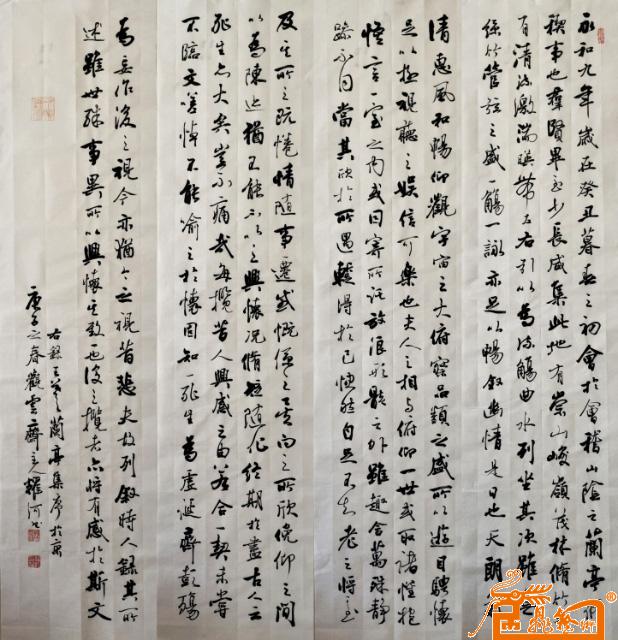 永和九年歲在癸丑暮春之初會於會稽山陰之蘭亭脩
禊事也羣賢畢至少長咸集此地有崇山峻嶺茂林脩竹
有清流激湍暎帶左右引以為流觴曲水列坐其次雖無
絲竹管弦之盛一觴一詠亦足以暢敘幽情是日也天朗氣
清惠風和暢仰觀宇宙之大俯察品類之盛所以遊目騁懷
足以極視聽之娛信可樂也夫人之相與俯仰一世或取諸懷抱
悟言一室之內或因寄所託放浪形骸之外雖趣舍萬殊靜
躁不同當其欣於所遇輒得於己快然自足不知老之將至
及其所之既惓情隨事遷感慨係之矣向之所欣俛仰之間
以為陳迹猶不能不以之興懷況脩短隨化終期於盡古人云
死生亦大矣豈不痛哉每攬昔人興感之由若合一契未嘗
不臨文嗟悼不能喻之於懷固知一死生為虛誕齊彭殤
為妄作後之視今亦猶今之視昔悲夫故列敘時人錄其所
述雖世殊事異所以興懷其致一也後之攬者亦將有感於斯文
右錄王羲之蘭亭集序於
庚子之春觀雲齋主人耀河書